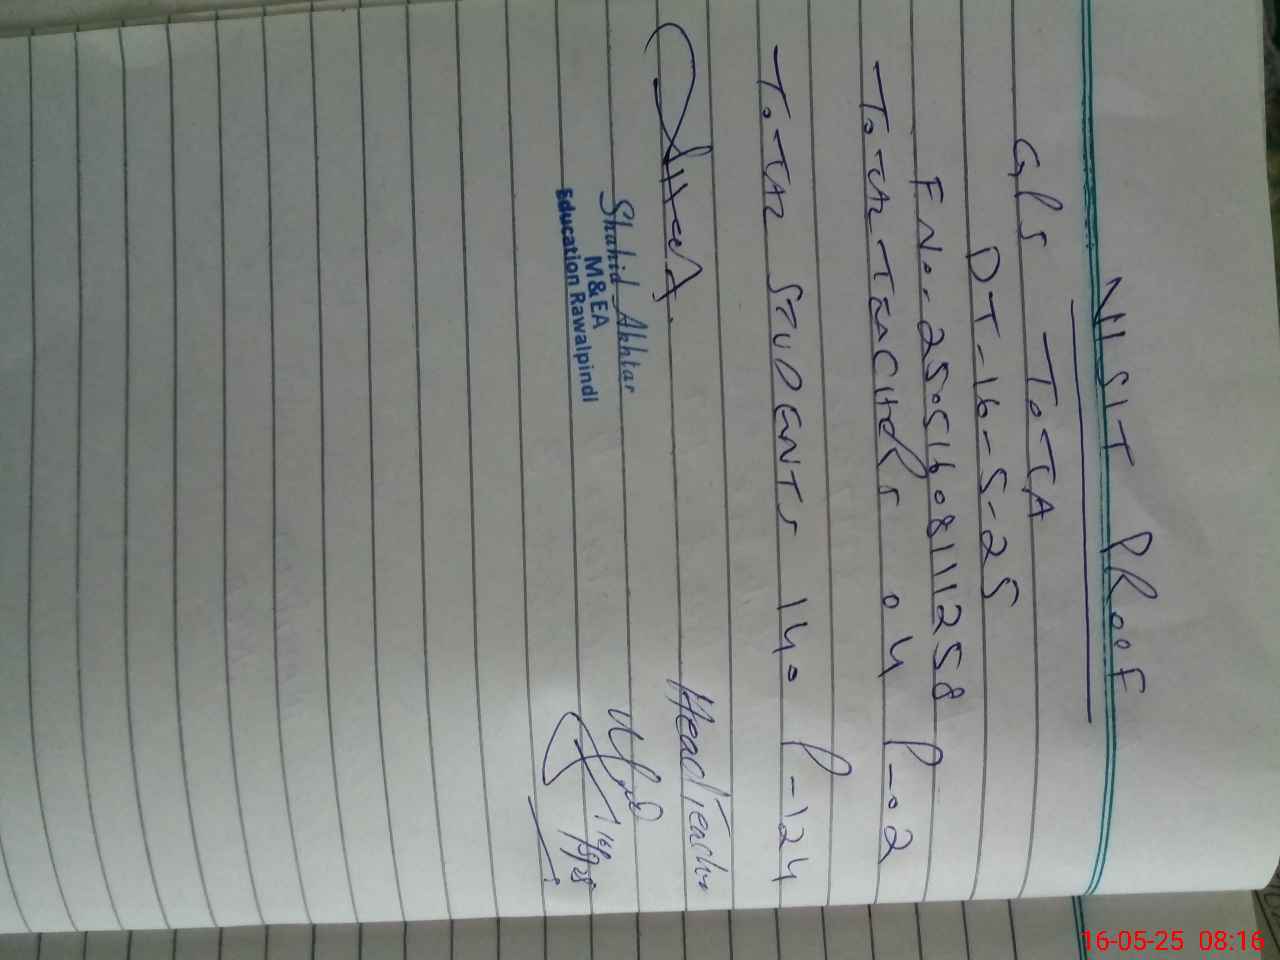 VISIT PROOF
GPS TOTA
DT-16-5-25
FNo-25051608111258
TOTAL TEACHERS 04 P-02
TOTAL STUDENTS 140 P-124
HeadTeacher
Shahid Akhtar
M&EA
Education Rawalpindi
16-05-25 08:16